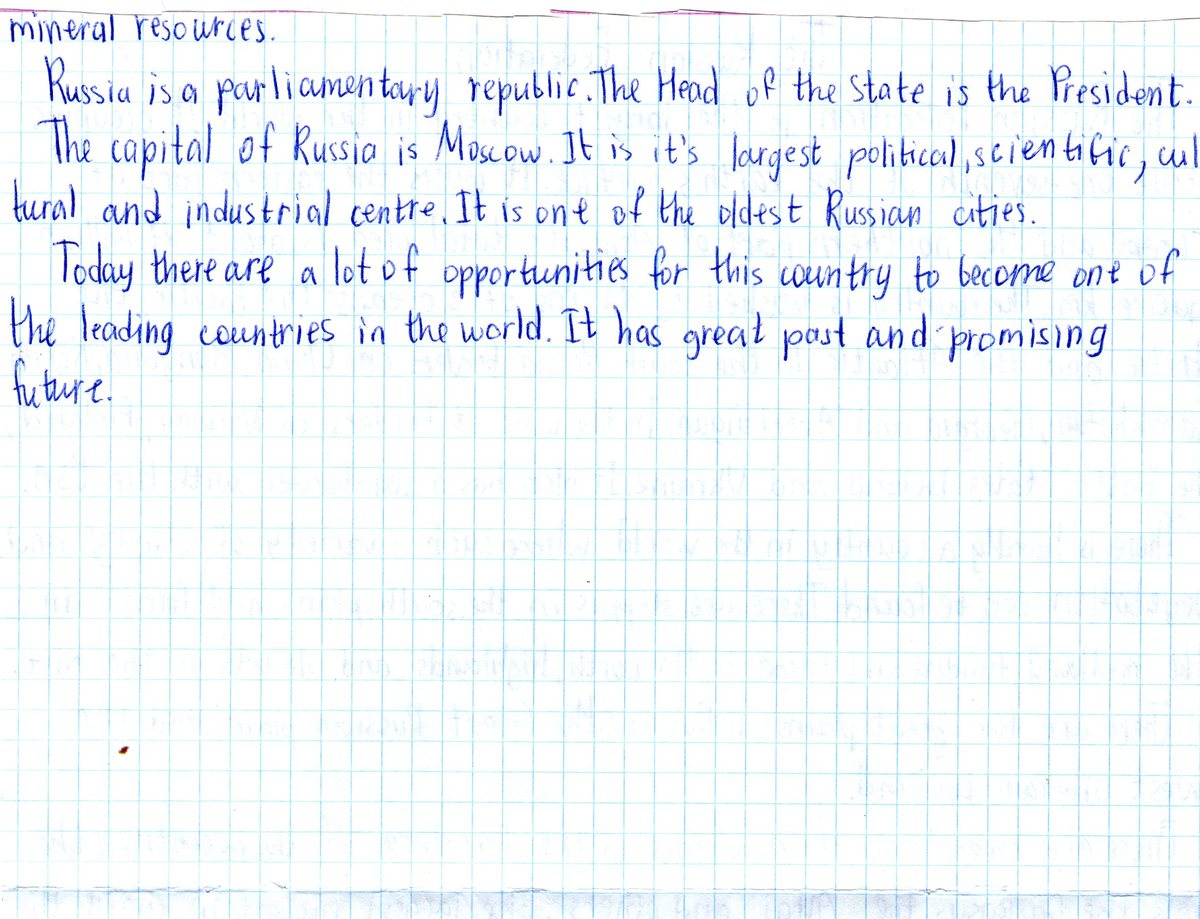 mineral resources.
Russia is a parliamentary republic. The Head of the State is the President.
The capital of Russia is Moscow. It is it's largest political, scientific, cul
tural and industrial centre. It is one of the oldest Russian cities.
Today there are a lot of opportunities for this country to become one of
the leading countries in the world. It has great past and promising
future.